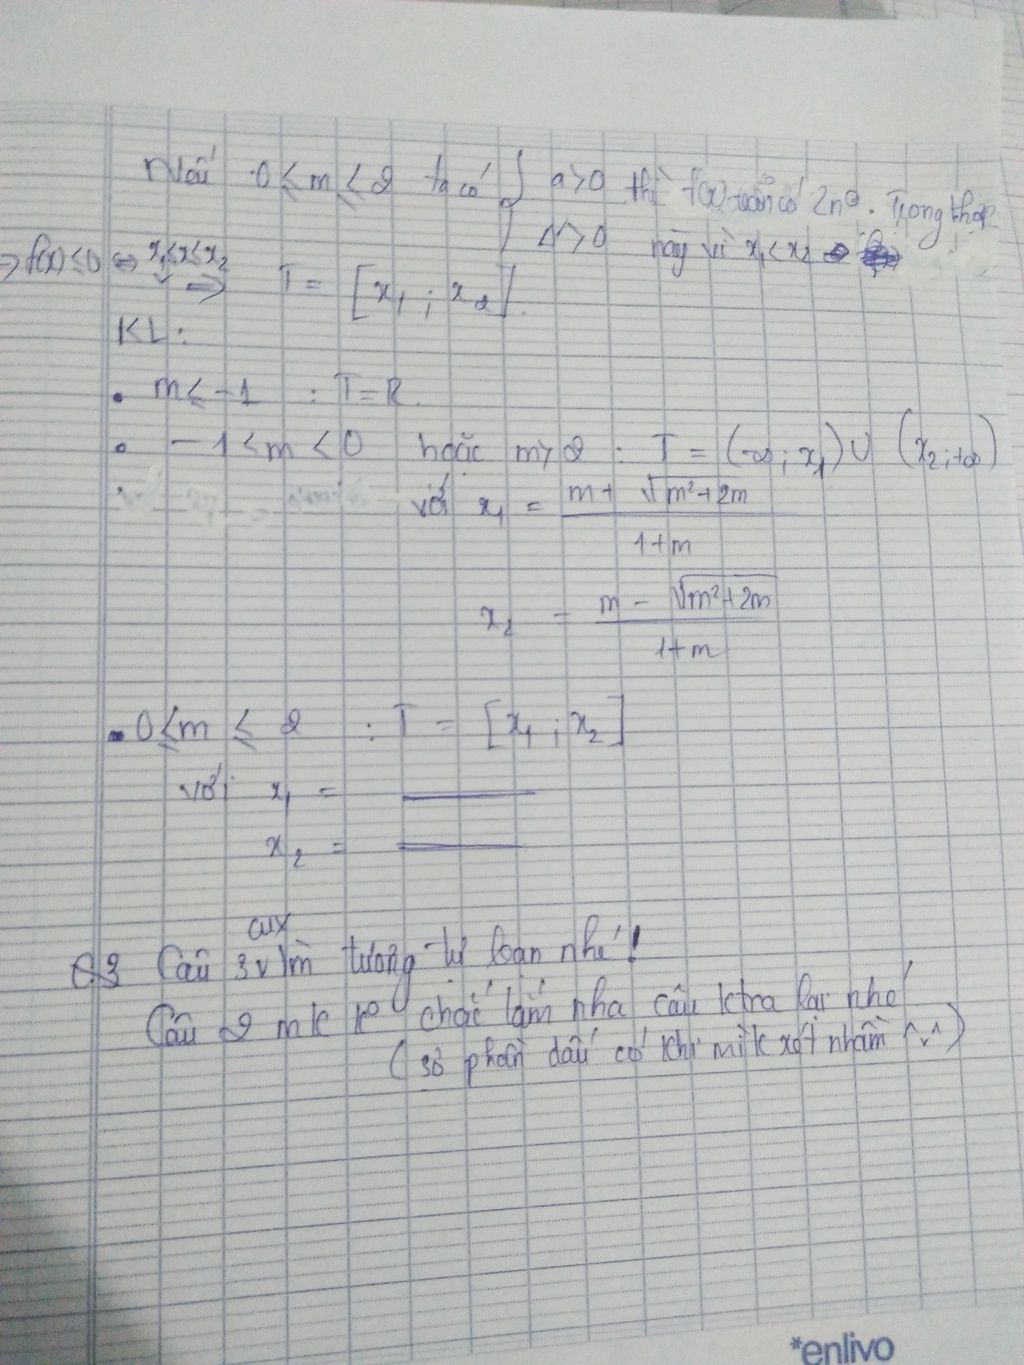 Nếu 0 ≤ m ≤ 2 ta có { a>0 thì f(x) luôn có 2 nº. Trong thợp
Δ'>0 này vì x₁<x₂
⇒ f(x) ≤ 0 ⇔ x₁≤x≤x₂
⇒ T = [x₁ ; x₂].
KL:
• m ≤ -1 : T = R.
• -1 < m < 0 hoặc m > 2 : T = (-∞; x₁) ∪ (x₂; +∞)
với x₁ = (m + √(m²+2m)) / (1+m)
x₂ = (m - √(m²+2m)) / (1+m)
- 0 ≤ m ≤ 2 : T = [x₁ ; x₂]
với x₁ =
x₂ =
3 Câu 3 cux lm tương tự bạn nhé!
Câu 2 mk kº chắc lắm nha cậu ktra lại nhé
(số phần dấu có khi mik xét nhầm ^v^)
*enlivo